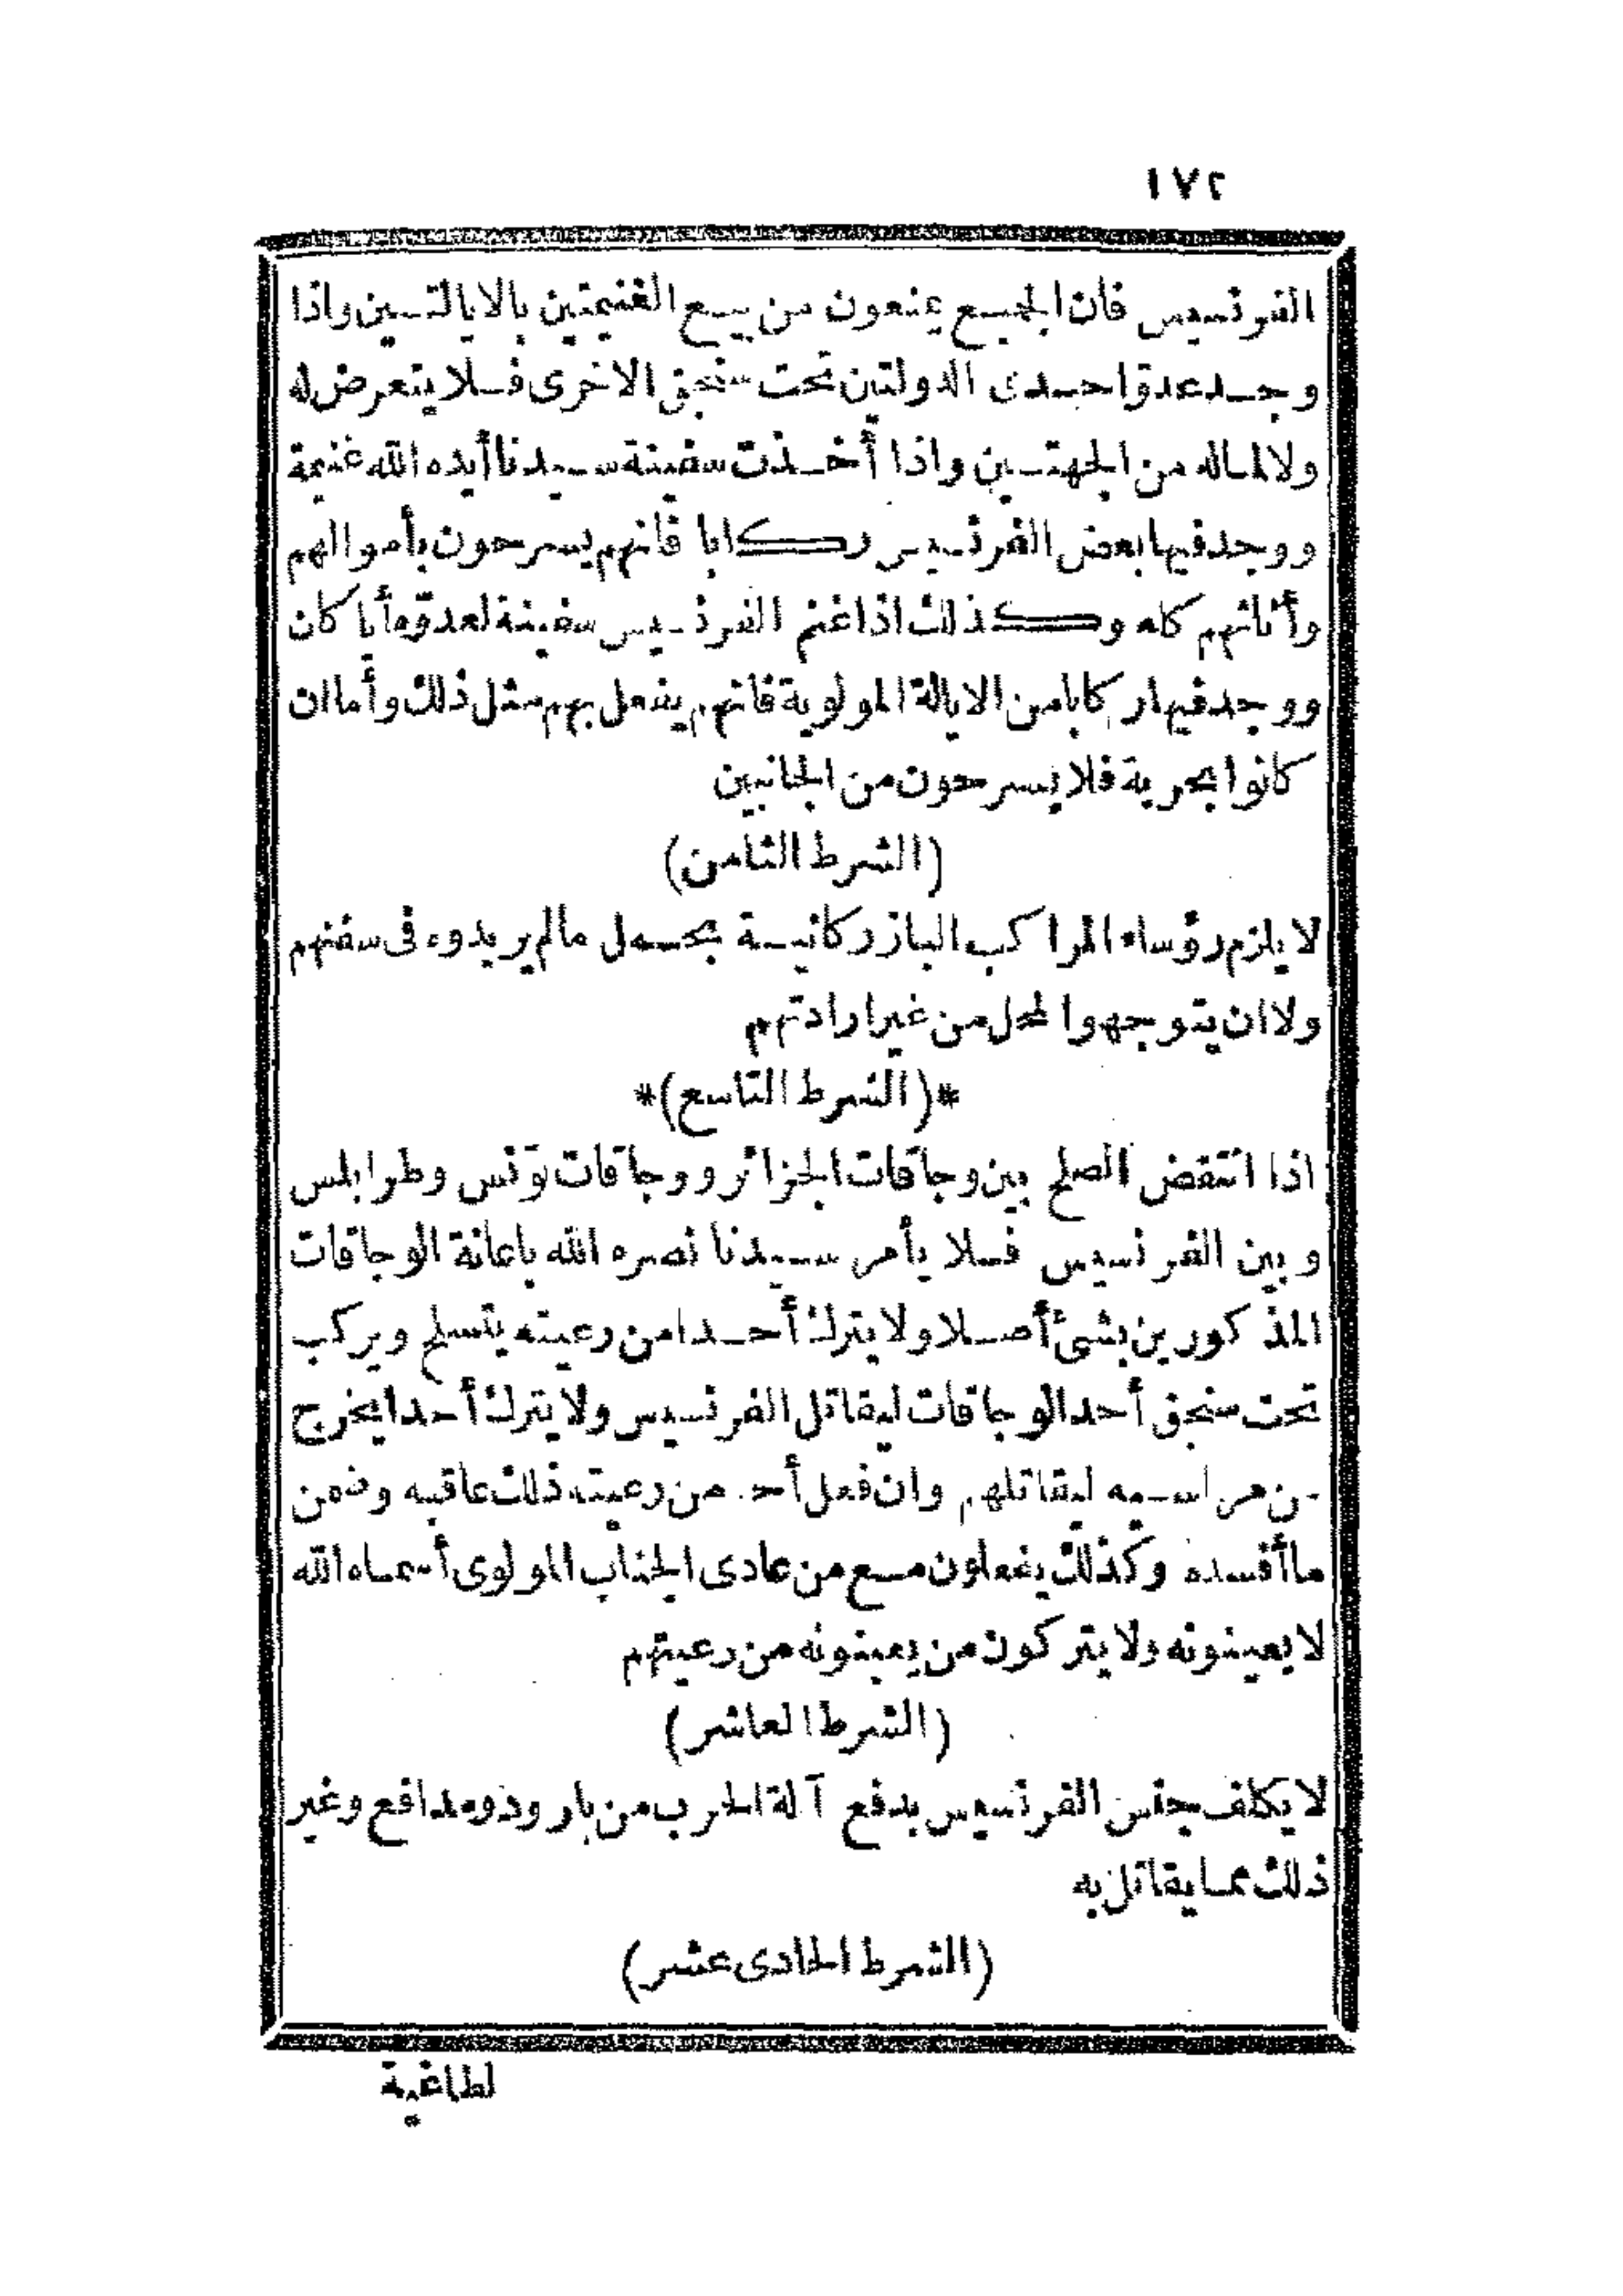 ١٧٢
الفرنسيس فان الجميع يمنعون من بيع الغنيمتين بالايالتين واذا
وجد عدو احدى الدولتين تحت سنجق الاخرى فلا يتعرض له
ولا لماله من الجهتين واذا أخذت سفينة سيدنا أيده الله غنيمة
ووجد فيها بعض الفرنسيس ركابا فانهم يسرحون بأموالهم
وأثاثهم كله وكذلك اذا غنم الفرنسيس سفينة لعدوّه أيا كان
ووجد فيها ركابا من الايالة المولوية فانهم يفعل بهم مثل ذلك وأما ان
كانوا بحرية فلا يسرحون من الجانبين
(الشرط الثامن)
لا يلزم رؤساء المراكب البازركانية بحمل مالم يريدوه فى سفنهم
ولا ان يتوجهوا لمحل من غير ارادتهم
*(الشرط التاسع)*
اذا انتقض الصلح بين وجاقات الجزائر ووجاقات تونس وطرابلس
وبين الفرنسيس فلا يأمر سيدنا نصره الله باعانة الوجاقات
المذكورين بشئ أصلا ولا يترك أحدا من رعيته يتسلح ويركب
تحت سنجق أحد الوجاقات ليقاتل الفرنسيس ولا يترك أحدا يخرج
من مراسيه ليقاتلهم وان فعل أحد من رعيته ذلك عاقبه وضمن
ما أفسده وكذلك يفعلون مع من عادى الجناب المولوى أسماه الله
لا يعينونه ولا يتركون من يعينونه من رعيتهم
(الشرط العاشر)
لا يكلف جنس الفرنسيس بدفع آلة الحرب من بارود ومدافع وغير
ذلك مما يقاتل به
(الشرط الحادى عشر)
لطاغية